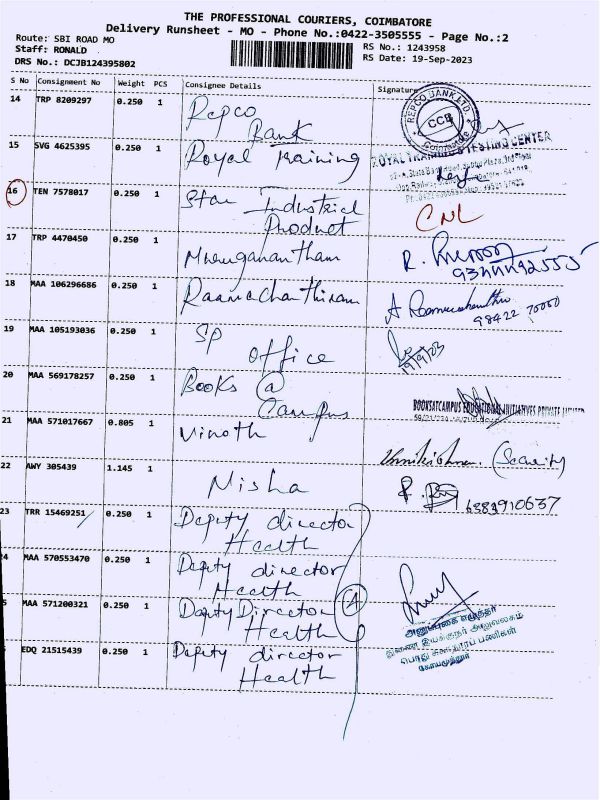 THE PROFESSIONAL COURIERS, COIMBATORE
Delivery Runsheet - MO - Phone No.:0422-3505555 - Page No.:2
Route: SBI ROAD MO
Staff: RONALD
DRS No.: DCJB124395802
RS No.: 1243958
RS Date: 19-Sep-2023
S No Consignment No Weight PCS Consignee Details Signature
14 TRP 8209297 0.250 1 Repco
Bank
REPCO BANK LTD
CCB
Coimbatore
15 SVG 4625395 0.250 1 Royal Training
ROYAL TRAINING & TESTING CENTER
16 TEN 7578017 0.250 1 Star Industrial
Product
CNL
17 TRP 4470450 0.250 1 Muruganantham
18 MAA 106296686 0.250 1 Raamachanthiram
98422 70000
19 MAA 105193036 0.250 1 SP
Office
19/9/23
20 MAA 569178257 0.250 1 Books @
Campus
BOOKSATCAMPUS EDUCATIONAL INITIATIVES PRIVATE LIMITED
21 MAA 571017667 0.805 1 Vinoth
(Security)
22 AWY 305439 1.145 1 Nisha
6383910637
23 TRR 15469251 0.250 1 Deputy director
Health
24 MAA 570553470 0.250 1 Deputy director
Health
5 MAA 571200321 0.250 1 Deputy Director
Health
4
EDQ 21515439 0.250 1 Deputy director
Health
இணை இயக்குநர் அலுவலகம்
கோயமுத்தூர்